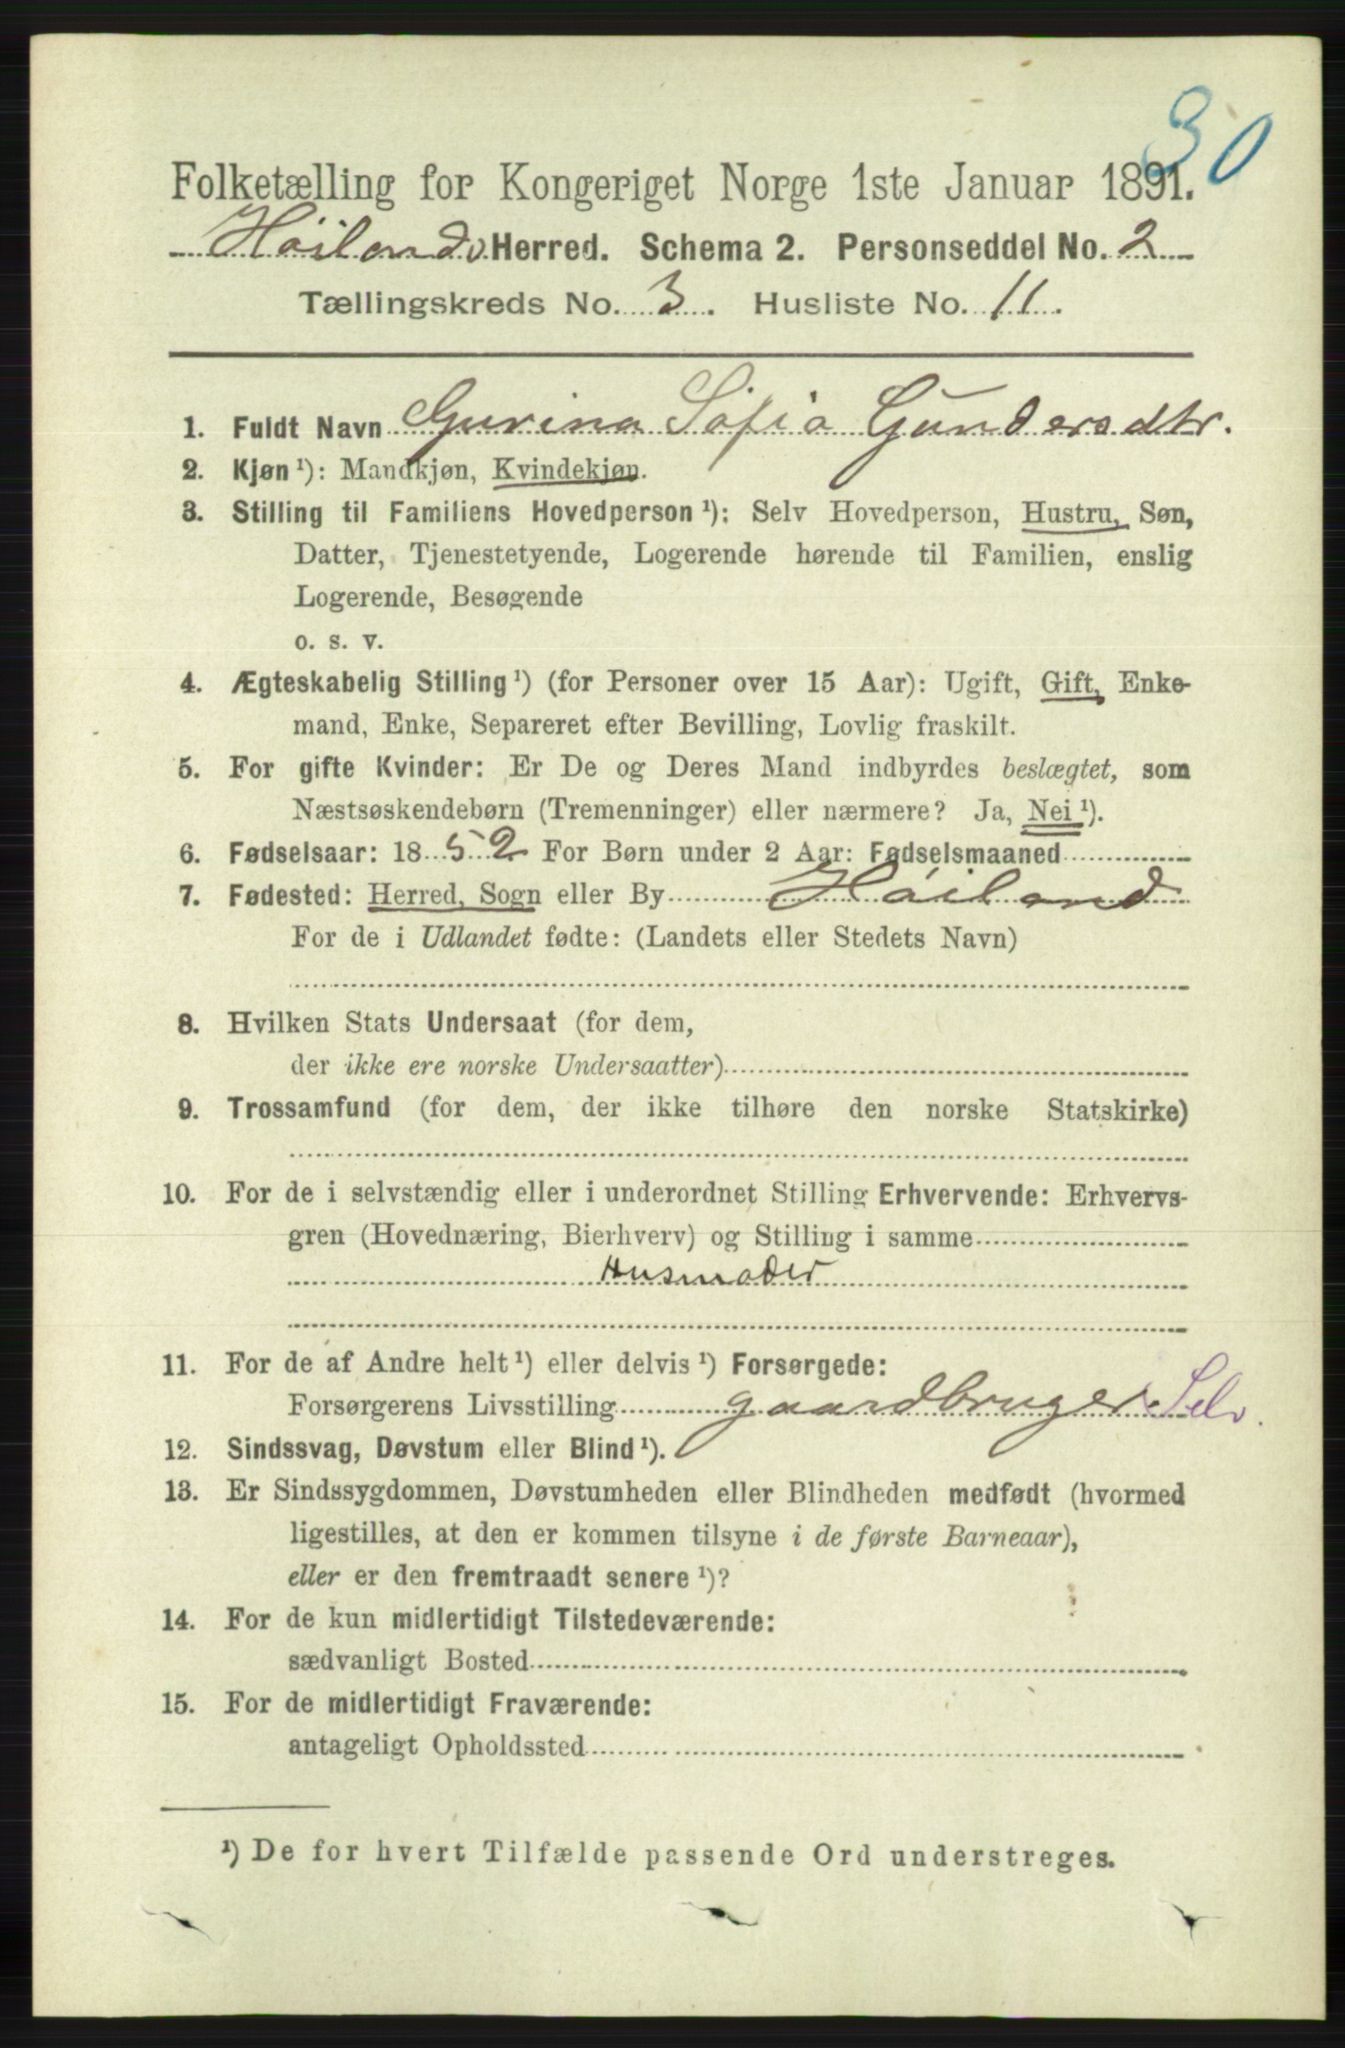 30
Folketælling for Kongeriget Norge 1ste Januar 1891.
Höilands Herred. Schema 2. Personseddel No. 2
Tællingskreds No. 3. Husliste No. 11.
1. Fuldt Navn Gurina Sofia Gundersdtr.
2. Kjøn ¹): Mandkjøn, Kvindekjøn.
3. Stilling til Familiens Hovedperson ¹): Selv Hovedperson, Hustru, Søn,
Datter, Tjenestetyende, Logerende hørende til Familien, enslig
Logerende, Besøgende
o. s. v.
4. Ægteskabelig Stilling ¹) (for Personer over 15 Aar): Ugift, Gift, Enke-
mand, Enke, Separeret efter Bevilling, Lovlig fraskilt.
5. For gifte Kvinder: Er De og Deres Mand indbyrdes beslægtet, som
Næstsøskendebørn (Tremenninger) eller nærmere? Ja, Nei ¹).
6. Fødselsaar: 1852 For Børn under 2 Aar: Fødselsmaaned
7. Fødested: Herred, Sogn eller By Höiland
For de i Udlandet fødte: (Landets eller Stedets Navn)
8. Hvilken Stats Undersaat (for dem,
der ikke ere norske Undersaatter)
9. Trossamfund (for dem, der ikke tilhøre den norske Statskirke)
10. For de i selvstændig eller i underordnet Stilling Erhvervende: Erhvervs-
gren (Hovednæring, Bierhverv) og Stilling i samme
Husmoder
11. For de af Andre helt ¹) eller delvis ¹) Forsørgede:
Forsørgerens Livsstilling gaardbruger Selv.
12. Sindssvag, Døvstum eller Blind ¹).
13. Er Sindssygdommen, Døvstumheden eller Blindheden medfødt (hvormed
ligestilles, at den er kommen tilsyne i de første Barneaar),
eller er den fremtraadt senere ¹)?
14. For de kun midlertidigt Tilstedeværende:
sædvanligt Bosted
15. For de midlertidigt Fraværende:
antageligt Opholdssted
¹) De for hvert Tilfælde passende Ord understreges.